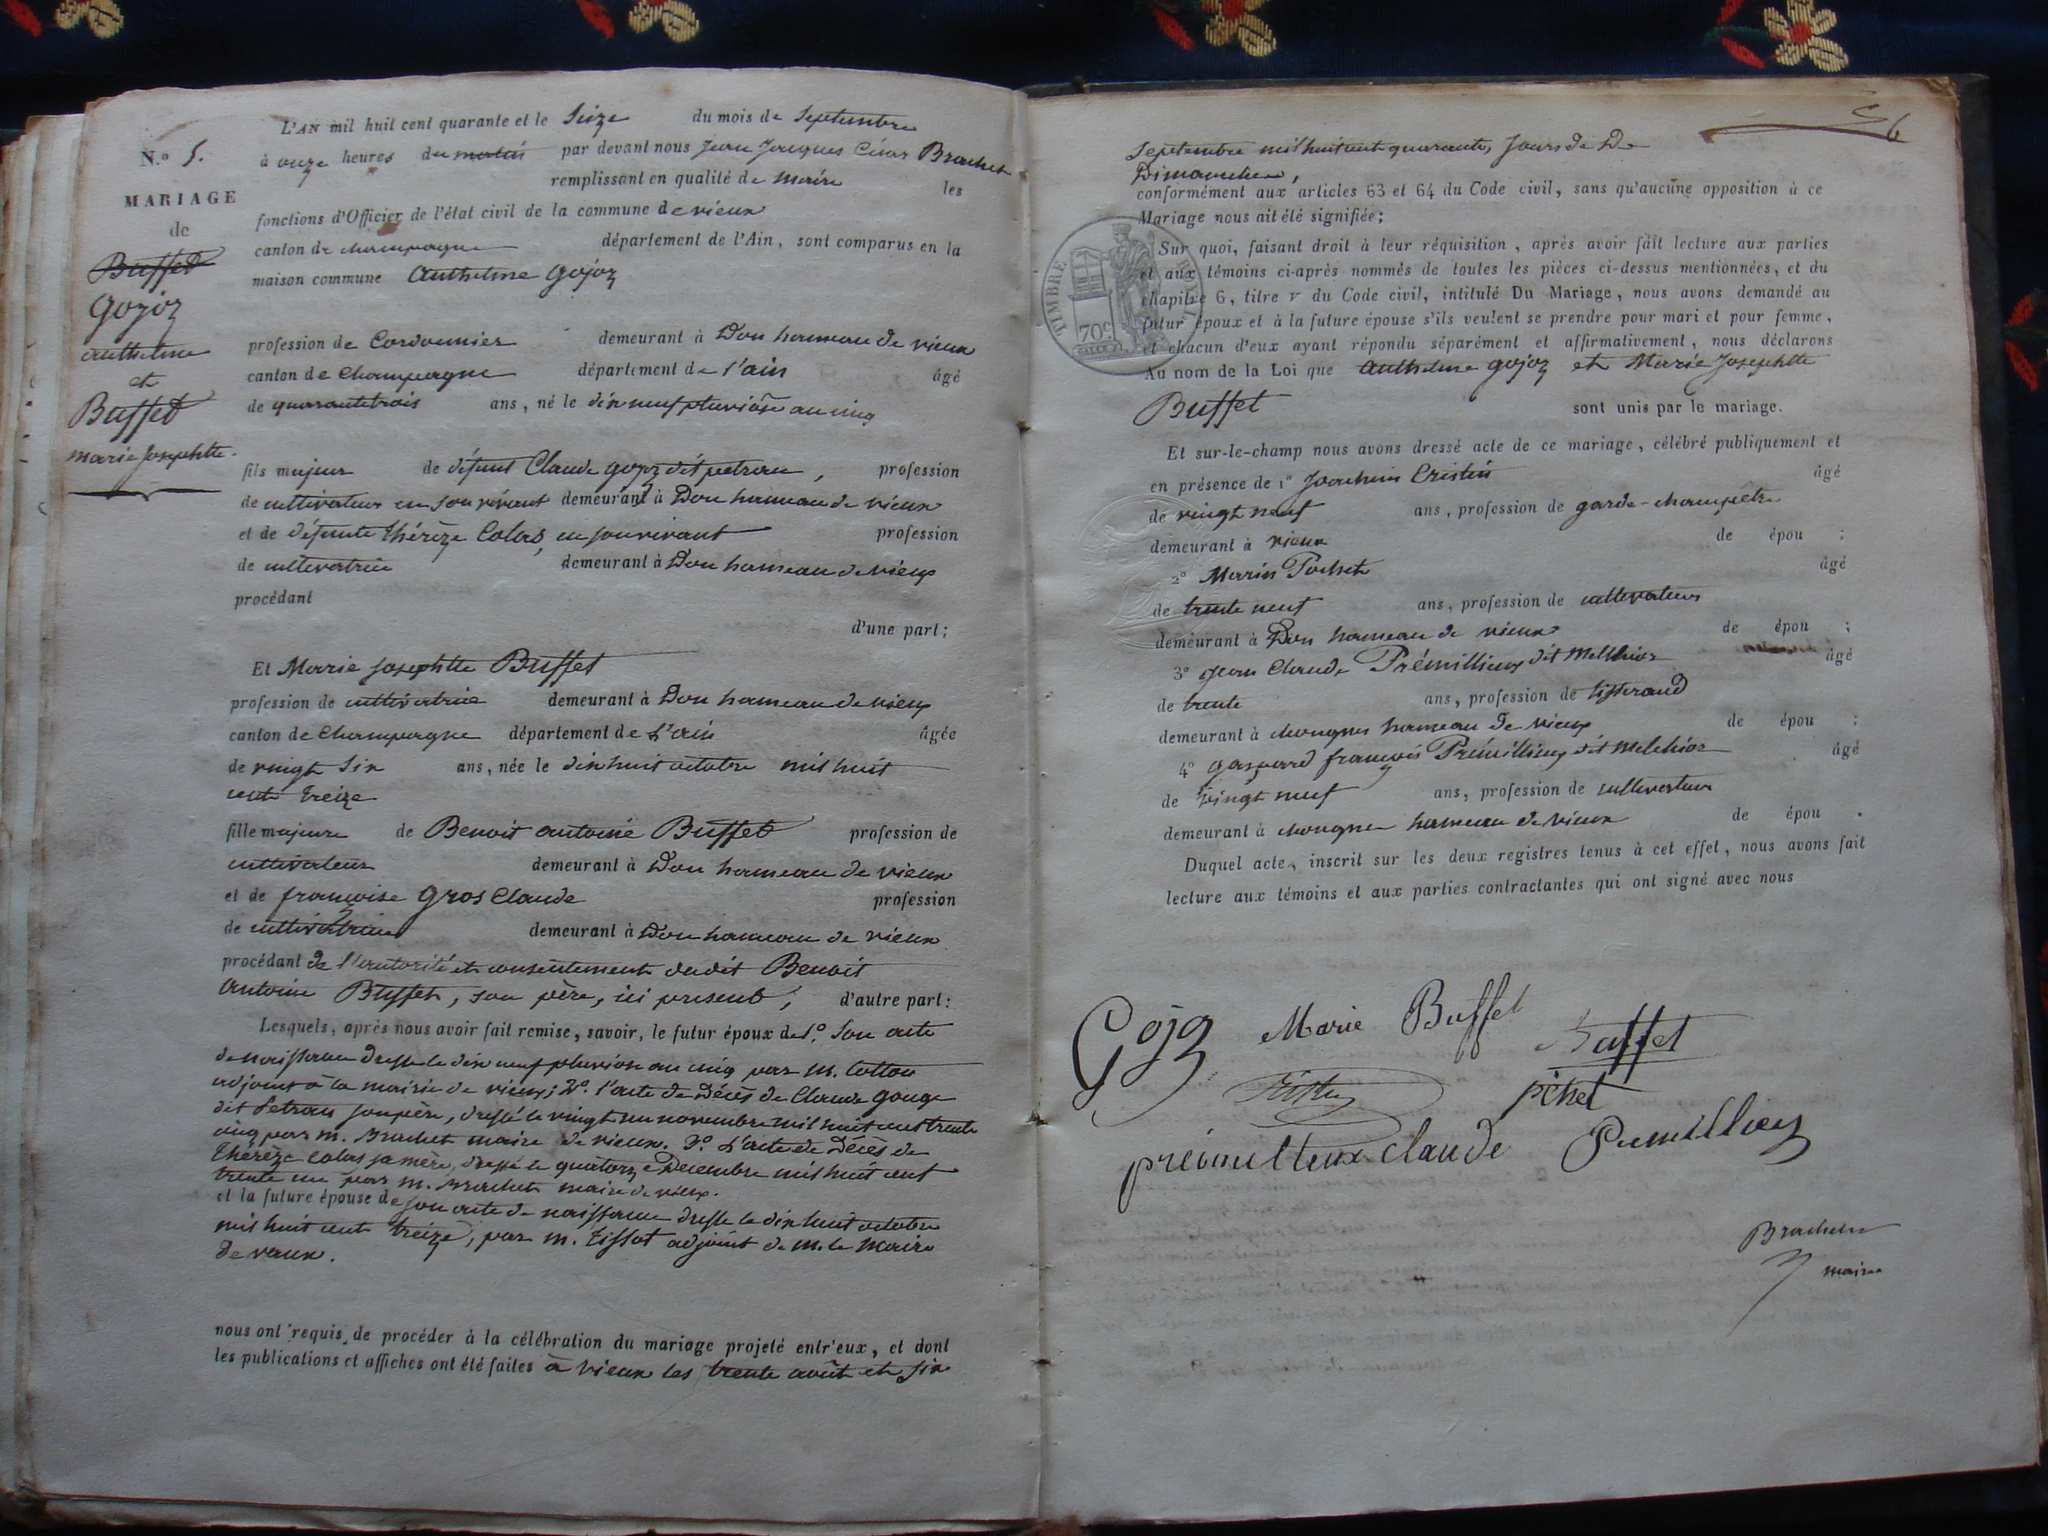 N.° 5.
MARIAGE
de
Buffet
Gojoz
anthelme
et
Buffet
marie Josephtte
L'AN mil huit cent quarante et le Seize du mois de Septembre
à onze heures du matin par devant nous Jean Jacques César Brachet
remplissant en qualité de maire les
fonctions d'Officier de l'état civil de la commune de vieux
canton de champagne département de l'Ain, sont comparus en la
maison commune anthelme Gojoz
profession de Cordonnier demeurant à Don hameau de vieux
canton de Champagne département de l'ain âgé
de quarante trois ans, né le dix neuf pluviôse an cinq
fils majeur de défunt Claude gojoz dit petran, profession
de cultivateur en son vivant demeurant à Don hameau de vieux
et de défunte thérèze Colas, en son vivant profession
de cultivatrice demeurant à Don hameau de vieux
procédant
d'une part;
Et Marie Josephtte Buffet
profession de cultivatrice demeurant à Don hameau de vieux
canton de Champagne département de L'ain âgée
de vingt Six ans, née le dix huit octobre mil huit
cent treize
fille majeure de Benoit antoine Buffet profession de
cultivateur demeurant à Don hameau de vieux
et de françoise Gros Claude profession
de cultivatrice demeurant à Don hameau de vieux
procédant de l'autorité et consentement dudit Benoit
antoine Buffet, son père, ici présent, d'autre part:
Lesquels, après nous avoir fait remise, savoir, le futur époux de 1.° Son acte
de naissance dressé le dix neuf pluviose an cinq par m. Cotton
adjoint à la mairie de vieux; 2.° l'acte de Décès de Claude gouge
dit Petran son père, dressé le vingt un novembre mil huit cent trente
cinq par m. Brachet maire de vieux. 3.° L'acte de Décès de
thérèze Colas sa mère, dressé le quatorze Decembre mil huit cent
trente un par m. Brachet maire de vieux.
et la future épouse de son acte de naissance dressé le dix huit octobre
mil huit cent treize, par m. tissot adjoint de m. le maire
de vieux.
nous ont requis de procéder à la célébration du mariage projeté entr'eux, et dont
les publications et affiches ont été faites à vieux les trente août et Six
6
Septembre mil huit cent quarante, Jours de De
Dimanches,
conformément aux articles 63 et 64 du Code civil, sans qu'aucune opposition à ce
Mariage nous ait été signifiée;
Sur quoi, faisant droit à leur réquisition, après avoir fait lecture aux parties
et aux témoins ci-après nommés de toutes les pièces ci-dessus mentionnées, et du
chapitre 6, titre v du Code civil, intitulé Du Mariage, nous avons demandé au
futur époux et à la future épouse s'ils veulent se prendre pour mari et pour femme,
et chacun d'eux ayant répondu séparément et affirmativement, nous déclarons
Au nom de la Loi que anthelme gojoz et Marie Josephtte
Buffet sont unis par le mariage.
TIMBRE ROYAL
70c
Et sur-le-champ nous avons dressé acte de ce mariage, célébré publiquement et
en présence de 1° Joachim Cristin âgé
de vingt neuf ans, profession de garde-champêtre
demeurant à vieux de épou ;
2° Marin Pochet âgé
de trente neuf ans, profession de cultivateur
demeurant à Don hameau de vieux de épou ;
3° Jean Claude Prémillieux dit Melchior âgé
de trente ans, profession de tisserand
demeurant à chongnes hameau de vieux de épou ;
4° gaspard françois Prémillieux dit Melchior âgé
de vingt neuf ans, profession de cultivateur
demeurant à chongnes hameau de vieux de épou .
Duquel acte, inscrit sur les deux registres tenus à cet effet, nous avons fait
lecture aux témoins et aux parties contractantes qui ont signé avec nous
Gojoz Marie Buffet
Buffet
pochet
premilleux claude Premillieux
Brachet
maire